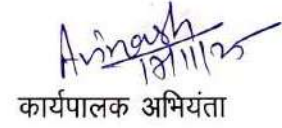 Avinash
13/11/25
कार्यपालक अभियंता